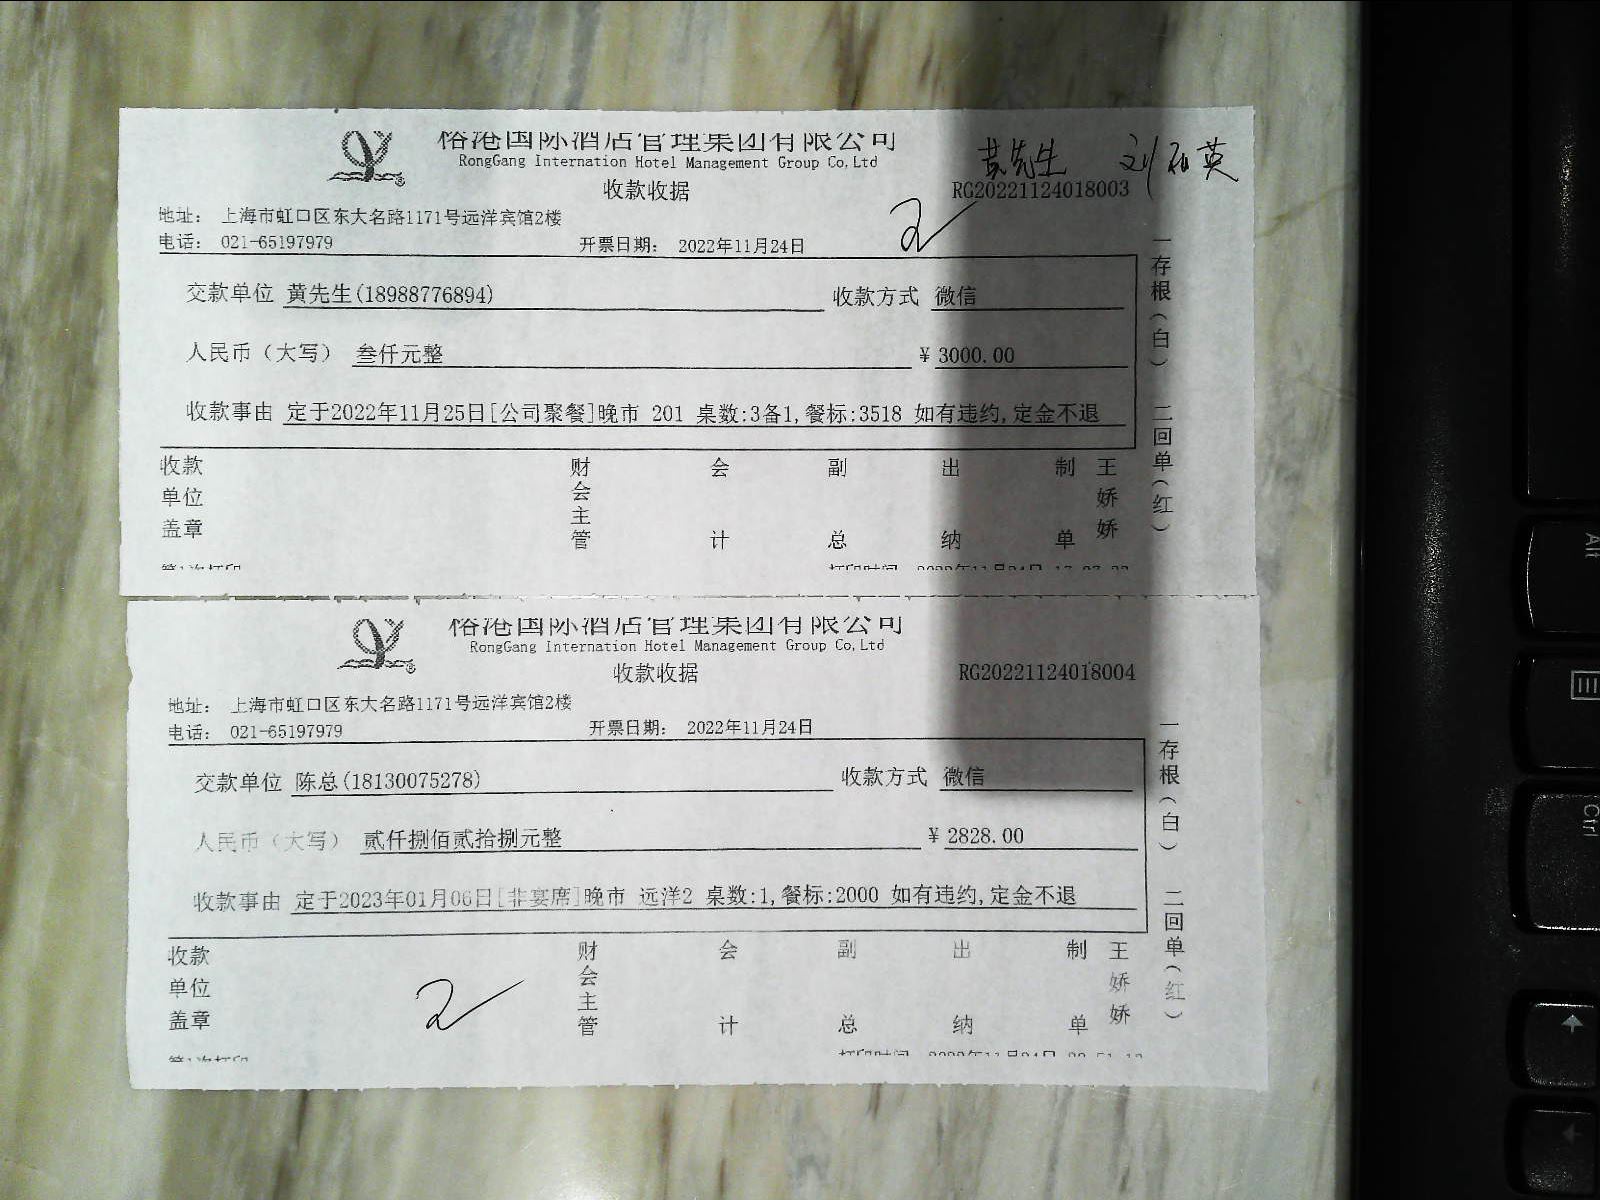 榕港国际酒店管理集团有限公司
RongGang Internation Hotel Management Group Co,Ltd
黄先生
收款收据
RG20221124018003
地址： 上海市虹口区东大名路1171号远洋宾馆2楼
电话： 021-65197979 开票日期： 2022年11月24日
交款单位 黄先生(18988776894) 收款方式 微信
人民币（大写） 叁仟元整 ￥3000.00
收款事由 定于2022年11月25日[公司聚餐]晚市 201 桌数:3备1,餐标:3518 如有违约,定金不退
收款单位盖章 财会主管 会计 副总 出纳 制单 王娇娇
一存根(白) 二回单(红)
第1次打印 打印时间 2022年11月24日
榕港国际酒店管理集团有限公司
RongGang Internation Hotel Management Group Co,Ltd
收款收据
RG20221124018004
地址： 上海市虹口区东大名路1171号远洋宾馆2楼
电话： 021-65197979 开票日期： 2022年11月24日
交款单位 陈总(18130075278) 收款方式 微信
人民币（大写） 贰仟捌佰贰拾捌元整 ￥2828.00
收款事由 定于2023年01月06日[非宴席]晚市 远洋2 桌数:1,餐标:2000 如有违约,定金不退
收款单位盖章 财会主管 会计 副总 出纳 制单 王娇娇
一存根(白) 二回单(红)
第1次打印 打印时间 2022年11月24日
Alt
Ctrl